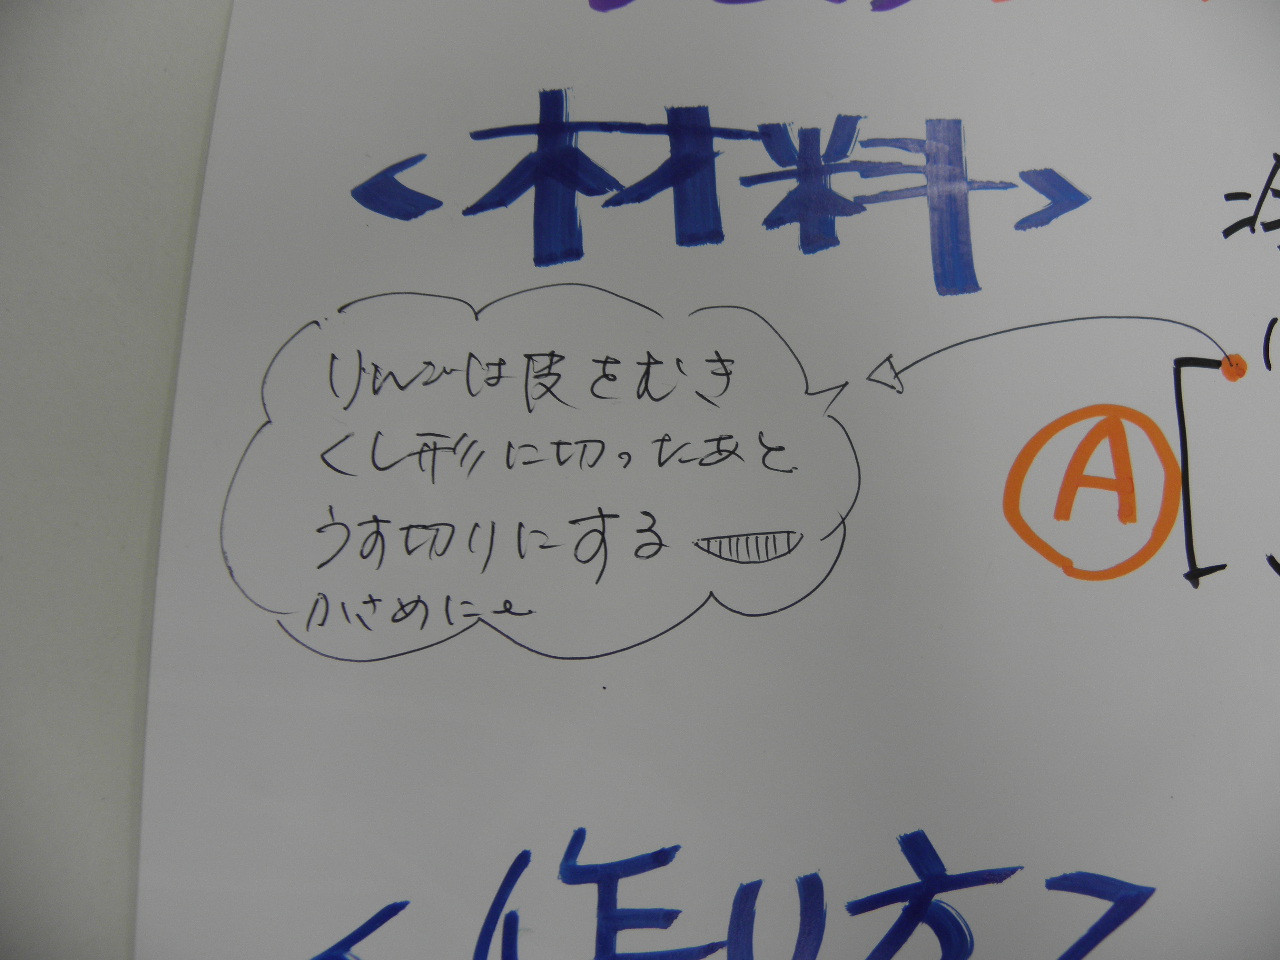 <材料>
りんごは皮をむき
くし形に切ったあと
うす切りにする
かさめに
A
<作り方>